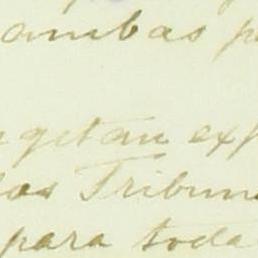 ambas p
getan exp
los Tribun
para toda